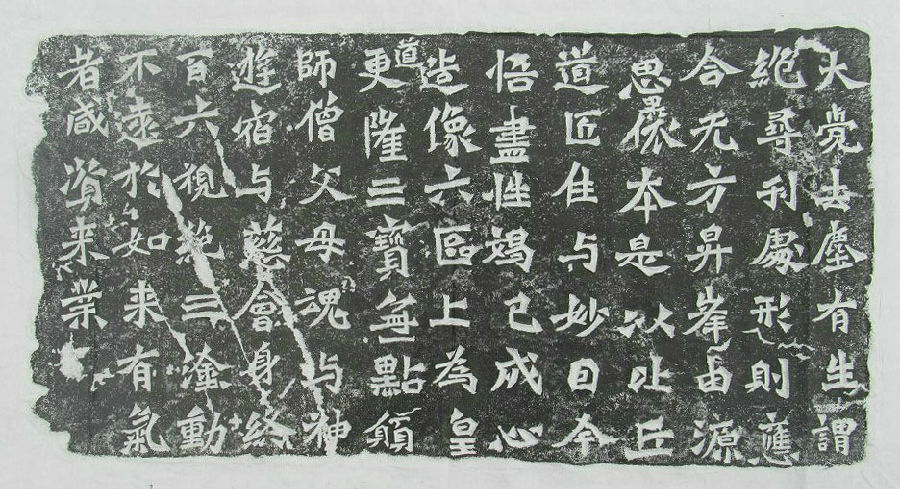 大覺去塵有生謂
絕尋刊處形則應
合无方昇峯由源
思本是以比丘
道匠住与妙因今
悟盡性竭己成心
造像六區上為皇
道更隆三寶無點願
師僧父母魂与神
遊宿与慈會身終
百六視絕三塗動
不遠於如来有氣
者咸資来業